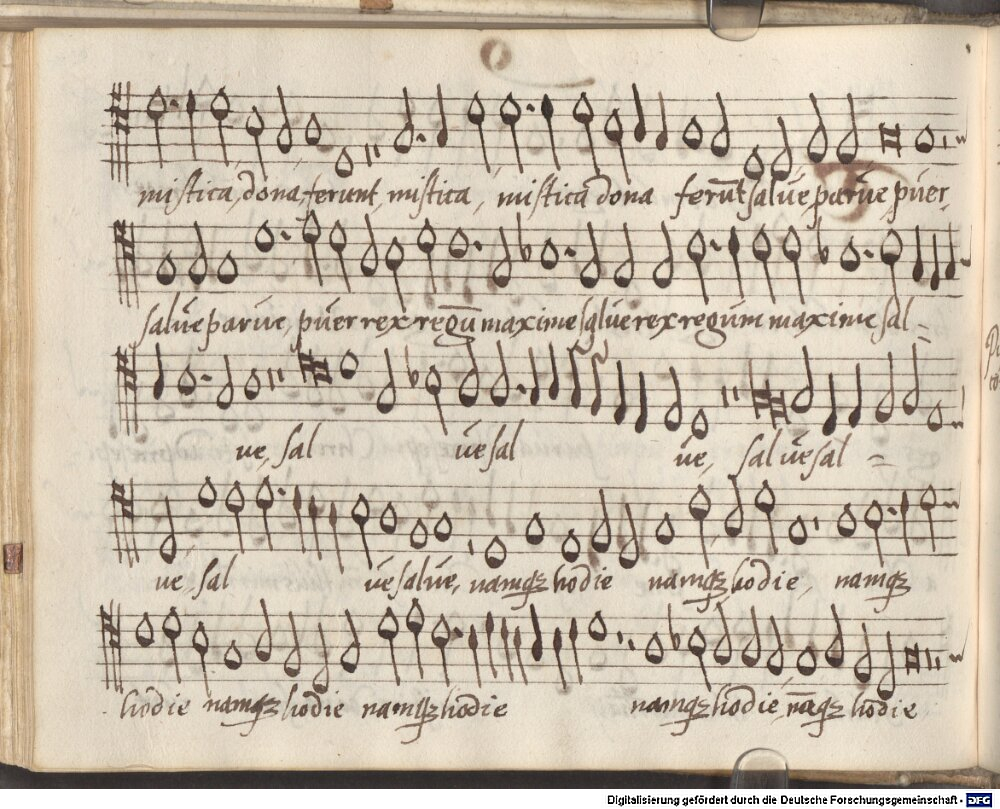 mistica, dona, ferunt, mistica, mistica dona ferūt salue, parue, puer,
salue parue, puer rex regū maxime salue rex regum maxime sal =
ue, sal ue sal ue, sal ue sal =
ue, sal ue salue, namqȝ hodie namqȝ hodie, namqȝ
hodie namqȝ hodie namqȝ hodie namqȝ hodie, nāqȝ hodie
Digitalisierung gefördert durch die Deutsche Forschungsgemeinschaft - DFG